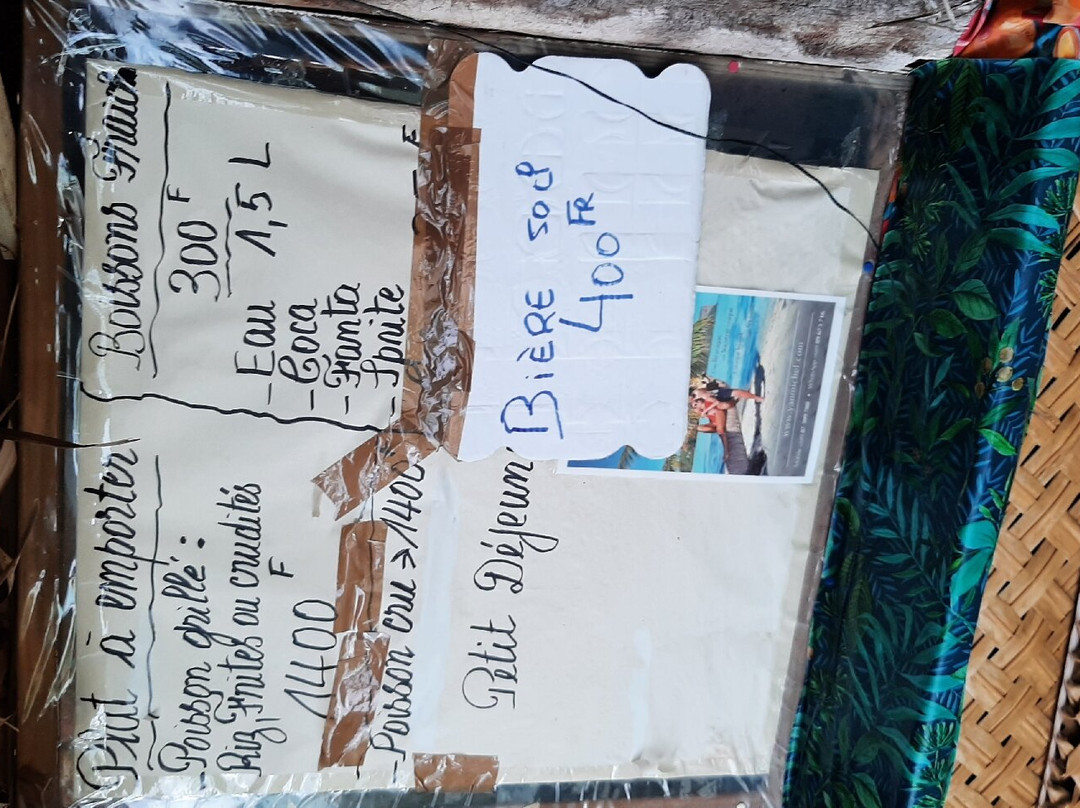 Plat à emporter
- Poisson grillé :
Riz, Frites ou crudités
1400 F
- Poisson cru => 1400
Petit Déjeun
Boissons Fraich
300 F
- Eau 1,5 L
- Coca
- Fanta
- Sprite
BIÈRE 50 cl
400 FR